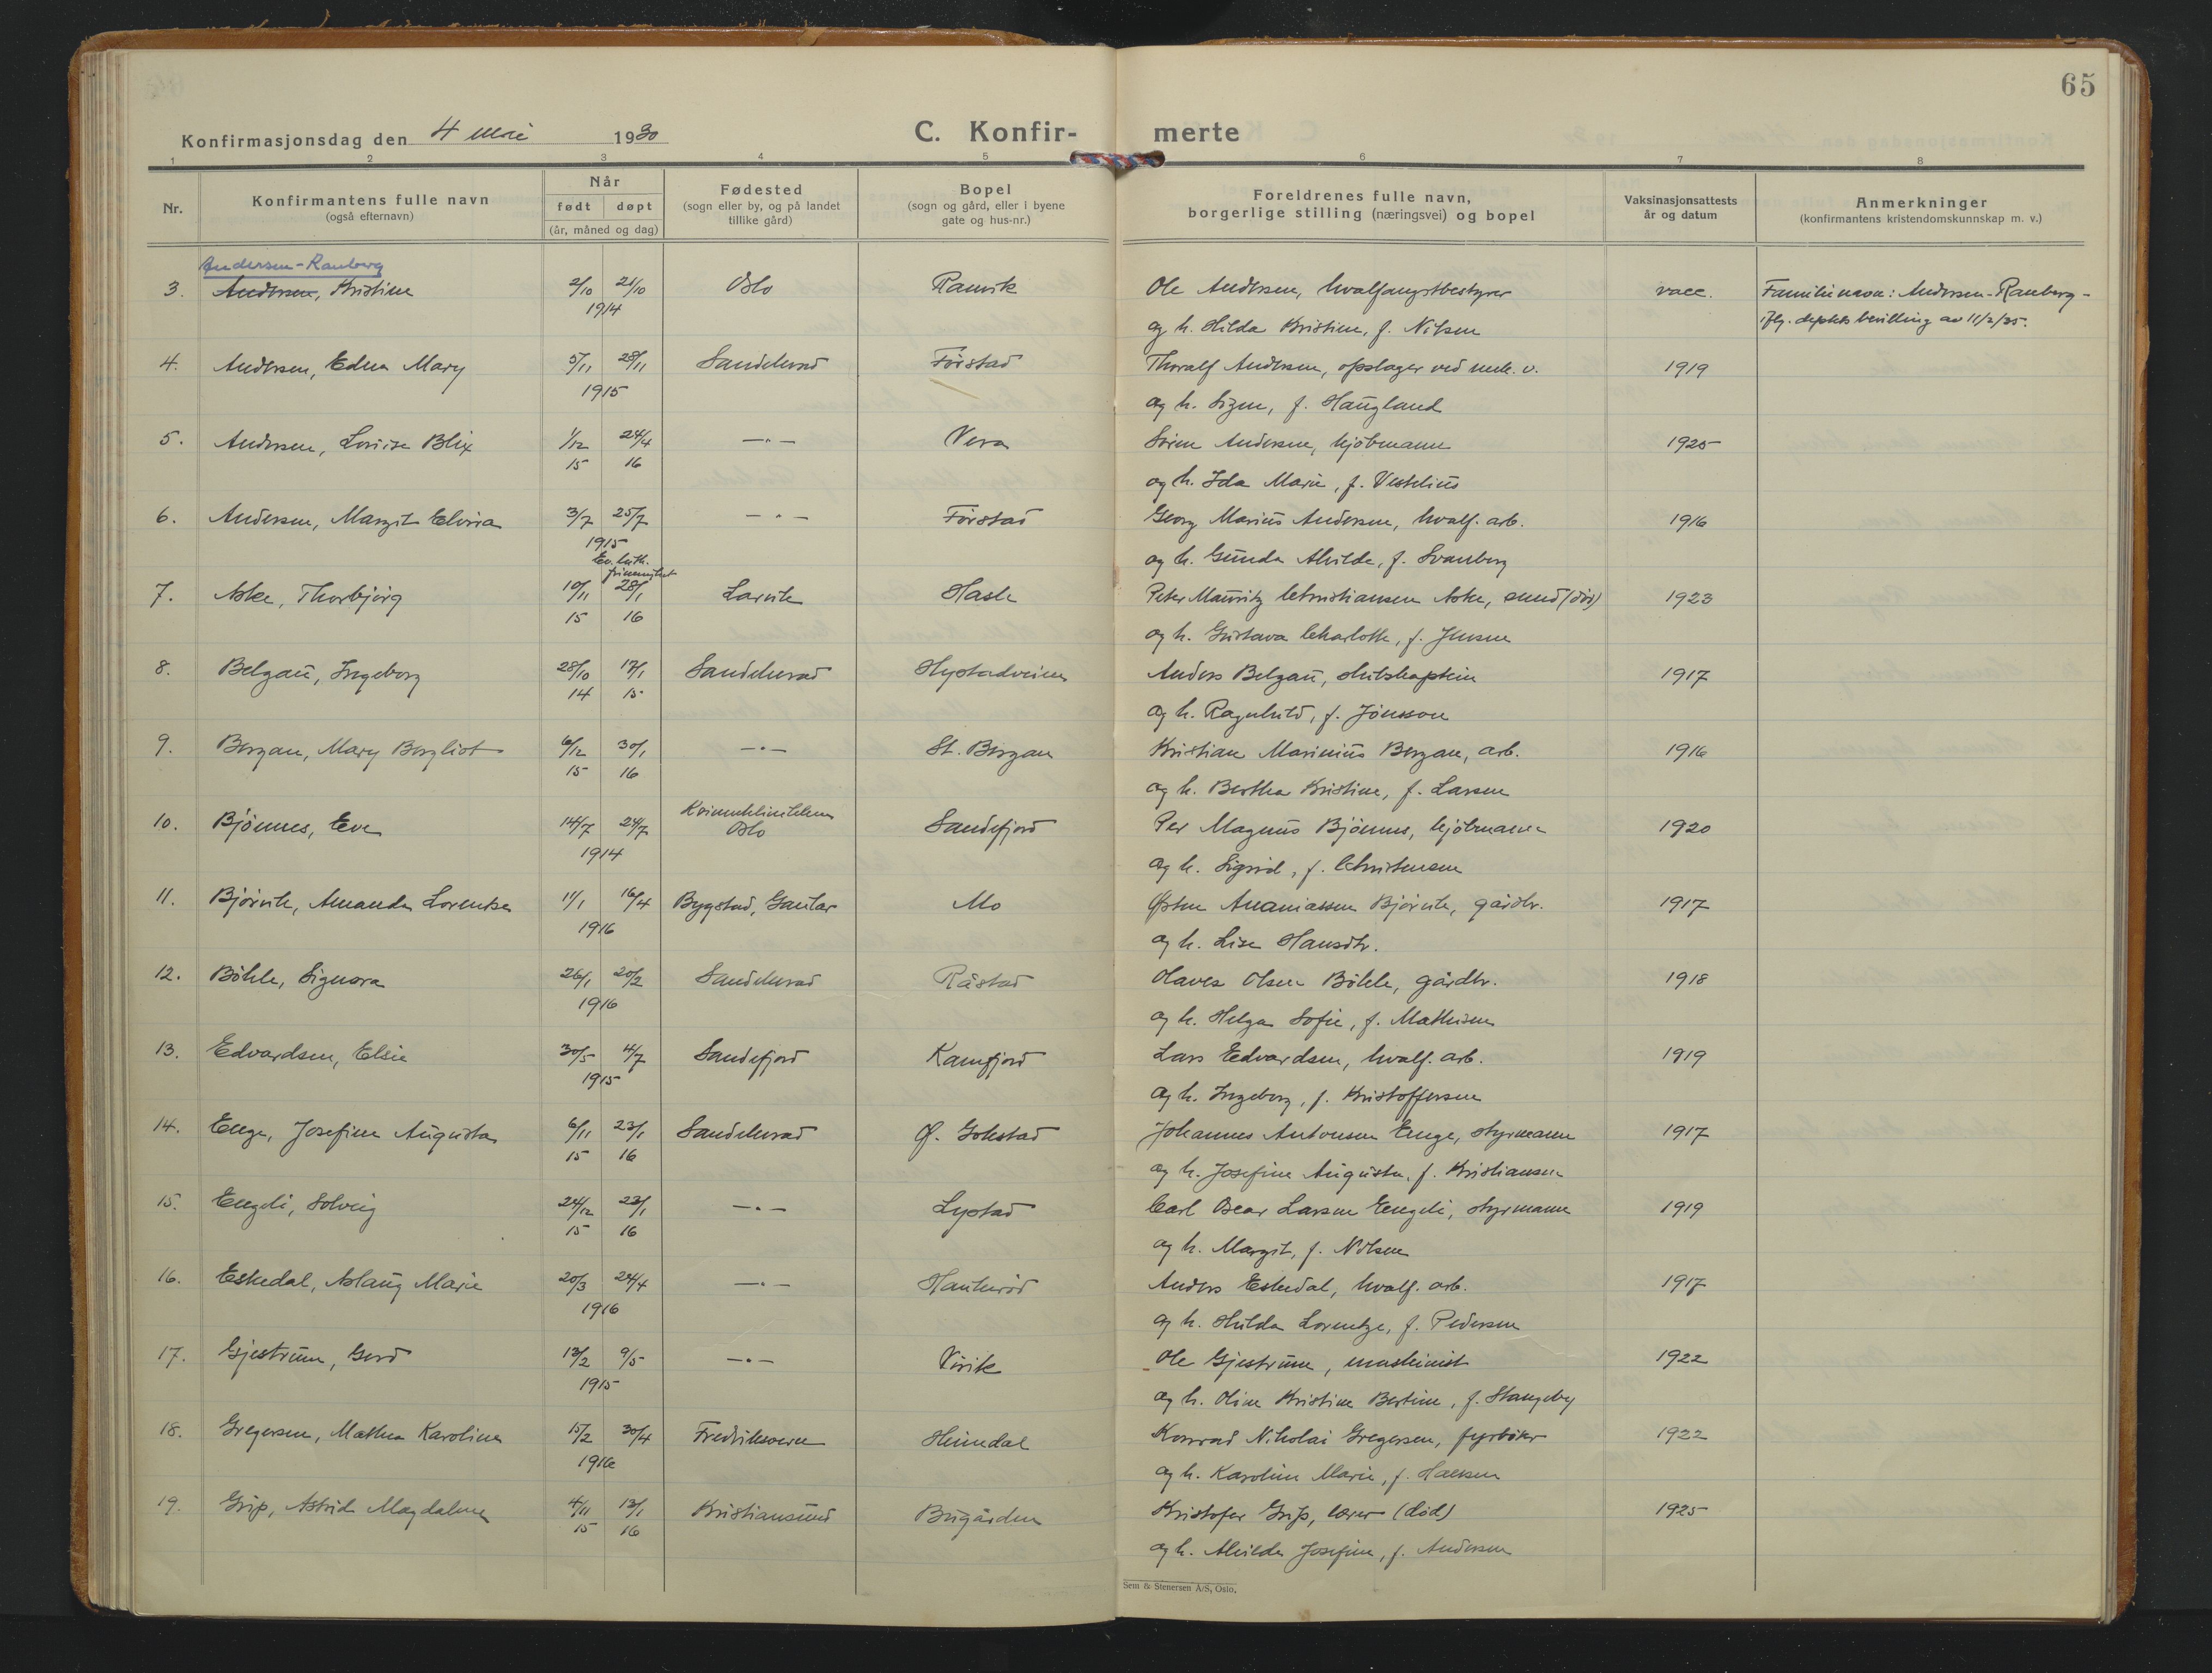 65
Konfirmasjonsdag den 4 mai 1930
C. Konfir- merte
1 2 3 4 5 6 7 8
Nr.
Konfirmantens fulle navn
(også efternavn)
Når
født døpt
(år, måned og dag)
Fødested
(sogn eller by, og på landet
tillike gård)
Bopel
(sogn og gård, eller i byene
gate og hus-nr.)
Foreldrenes fulle navn,
borgerlige stilling (næringsvei) og bopel
Vaksinasjonsattests
år og datum
Anmerkninger
(konfirmantens kristendomskunnskap m. v.)
Andersen-Ranberg
3. Andersen, Kristine 2/10 21/10 Oslo Ranvik Ole Andersen, hvalfangstbestyrer vacc. Familienavn: Andersen-Ranberg-
1914 og h. Hilda Kristine, f. Nilsen iflg. deptets bevilling av 11/2/25.
4. Andersen, Edna Mary 5/11 28/11 Sandeherad Førstad Thoralf Andersen, opslager ved mek. v. 1919
1915 og h. Signe, f. Haugland
5. Andersen, Louise Blix 1/12 24/4 —„— Vera Sören Andersen, kjøbmann 1925
15 16 og h. Ida Marie, f. Vestelius
6. Andersen, Margit Elvira 3/7 25/7 —„— Førstad Georg Marius Andersen, hvalf. arb. 1916
1915 og h. Gunda Alvilde, f. Svanberg
Ev. luth.
frimenighet
7. Aske, Thorbjörg 10/11 28/1 Larvik Hasle Peter Mauritz Christiansen Aske, smed (död) 1923
15 16 og h. Gustava Charlotte, f. Jensen
8. Belgau, Ingeborg 28/10 17/1 Sandeherad Hystadveien Anders Belgau, skibskaptein 1917
14 15 og h. Ragnhild, f. Jönsson
9. Bergan, Mary Bergliot 6/12 30/1 —„— St. Bergan Kristian Marinius Bergan, arb. 1916
15 16 og h. Bertha Kristine, f. Larsen
10. Bjönnes, Eva 14/7 24/7 Kvinneklinikken Oslo Sandefjord Per Magnus Bjönnes, kjöbmann 1920
1914 og h. Sigrid, f. Christensen
11. Bjørvik, Amanda Lorentse 11/1 16/4 Bygstad, Gaular Mo Østen Ananiassen Bjørvik, gårdbr. 1917
1916 og h. Lise Hansdtr.
12. Böhle, Signora 26/1 20/2 Sandeherad Råstad Olaves Olsen Böhle, gårdbr. 1918
1916 og h. Helga Sofie, f. Mathisen
13. Edvardsen, Elsie 30/5 4/7 Sandefjord Kamfjord Lars Edvardsen, hvalf. arb. 1919
1915 og h. Ingeborg, f. Kristoffersen
14. Enge, Josefine Augusta 6/11 23/1 Sandeherad Ø. Gokstad Johannes Antonsen Enge, styrmann 1917
15 16 og h. Josefine Augusta, f. Kristiansen
15. Engeli, Solveig 24/12 23/1 —„— Lystad Carl Oscar Larsen Engeli, styrmann 1919
15 16 og h. Margit, f. Nilsen
16. Eskedal, Aslaug Marie 20/3 24/4 —„— Haukerød Anders Eskedal, hvalf. arb. 1917
1916 og h. Hulda Lorentze, f. Pedersen
17. Gjestrum, Gerd 13/2 9/5 —„— Virik Ole Gjestrum, maskinist 1922
1915 og h. Oline Kristine Bertine, f. Stangeby
18. Gregersen, Mathea Karoline 15/2 30/4 Fredriksvern Heimdal Konrad Nikolai Gregersen, fyrbøter 1922
1916 og h. Karoline Marie, f. Hansen
19. Grip, Astrid Magdalene 4/11 13/1 Kristiansund Bugården Kristofer Grip, lærer (död) 1925
15 16 og h. Alvilde Josefine, f. Andersen
Sem & Stenersen A/S, Oslo.